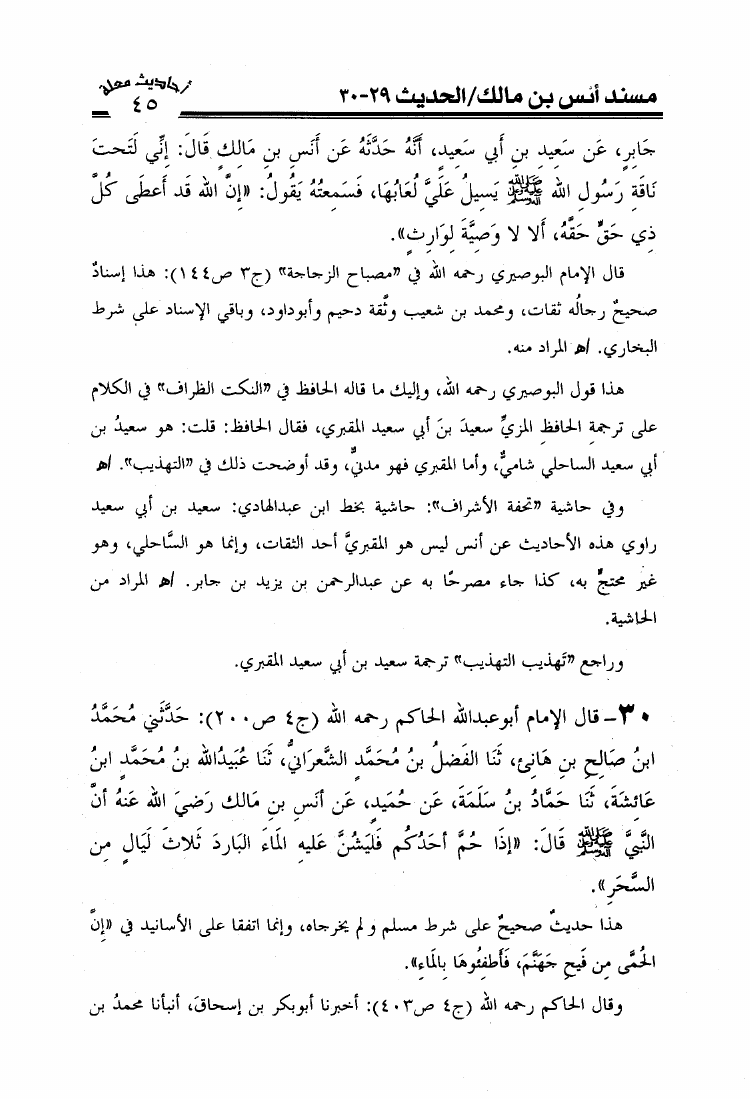 مسند أنس بن مالك/الحديث ٢٩-٣٠
أحاديث معلة
٤٥
جَابِرٍ، عَن سَعِيدِ بنِ أبي سَعِيدٍ، أَنَّهُ حَدَّثَهُ عَن أَنَسِ بنِ مَالِكٍ قَالَ: إِنِّي لَتَحتَ
نَاقَةِ رَسُولِ الله ﷺ يَسِيلُ عَلَيَّ لُعَابُهَا، فَسَمِعتُهُ يَقُولُ: «إِنَّ الله قَد أَعطَى كُلَّ
ذِي حَقٍّ حَقَّهُ، أَلا لا وَصِيَّةَ لِوَارِثٍ».
قال الإمام البوصيري رحمه الله في «مصباح الزجاجة» (ج٣ ص١٤٤): هذا إسنادٌ
صحيحٌ رجالُه ثقات، ومحمد بن شعيب وثَّقة دحيم وأبوداود، وباقي الإسناد على شرط
البخاري. اﻫ المراد منه.
هذا قول البوصيري رحمه الله، وإليك ما قاله الحافظ في «النكت الظراف» في الكلام
على ترجمةِ الحافظِ المزيِّ سعيدَ بنَ أبي سعيد المقبري، فقال الحافظ: قلت: هو سعيدُ بن
أبي سعيد الساحلي شاميٌّ، وأما المقبري فهو مدنيٌّ، وقد أوضحت ذلك في «التهذيب». اﻫ
وفي حاشية «تحفة الأشراف»: حاشية بخط ابن عبدالهادي: سعيد بن أبي سعيد
راوي هذه الأحاديث عن أنس ليس هو المقبريَّ أحد الثقات، وإنما هو السَّاحلي، وهو
غير محتجٍّ به، كذا جاء مصرحًا به عن عبدالرحمن بن يزيد بن جابر. اﻫ المراد من
الحاشية.
وراجع «تَهذيب التهذيب» ترجمة سعيد بن أبي سعيد المقبري.
٣٠- قال الإمام أبوعبدالله الحاكم رحمه الله (ج٤ ص٢٠٠): حَدَّثَنِي مُحَمَّدُ
ابنُ صَالِحِ بنِ هَانِئ، ثَنَا الفَضلُ بنُ مُحَمَّدٍ الشَّعرَانِيُّ، ثَنَا عُبَيدُالله بنُ مُحَمَّدٍ ابنُ
عَائِشَةَ، ثَنَا حَمَّادُ بنُ سَلَمَةَ، عَن حُمَيدٍ، عَن أَنَسِ بنِ مَالك رَضيَ الله عَنهُ أنَّ
النَّبِيَّ ﷺ قَالَ: «إِذَا حُمَّ أَحَدُكُم فَليَشُنَّ عَليهِ الماءَ البَاردَ ثَلاثَ لَيَالٍ مِن
السَّحَرِ».
هذا حديثٌ صحيحٌ على شرط مسلم ولم يخرجاه، وإنما اتفقا على الأسانيد في «إِنَّ
الحُمَّى مِن فَيحِ جَهَنَّمَ، فَأَطفِئُوهَا بِالمَاءِ».
وقال الحاكم رحمه الله (ج٤ ص٤٠٣): أخبرنا أبوبكر بن إسحاق، أنبأنا محمدُ بن